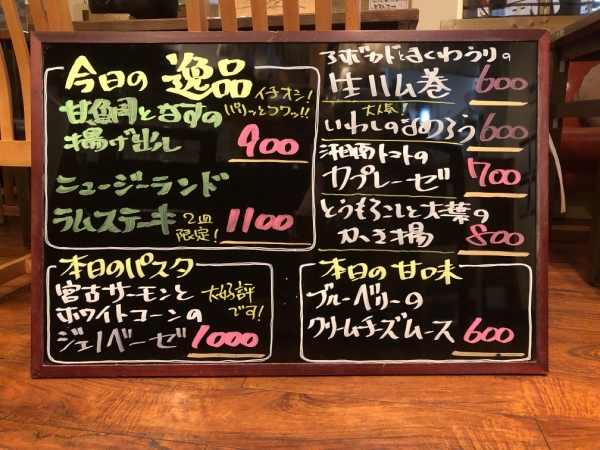 今日の 逸品
イチオシ!
甘鯛となすの
パリッとフワッ!!
揚げ出し 900
ニュージーランド
ラムステーキ 2皿限定! 1100
アボカドとまくわうりの
生ハム巻 600
大人気!
いわしのなめろう 600
湘南トマトの
カプレーゼ 700
とうもろこしと大葉の
かき揚 800
本日のパスタ
宮古サーモンと
大好評です!
ホワイトコーンの
ジェノベーゼ 1000
本日の甘味
ブルーベリーの
クリームチーズムース 600